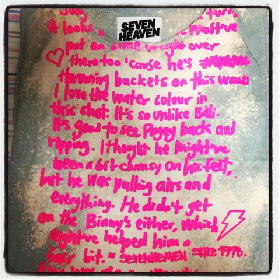 SEVEN
HEAVEN
it looks
put on some weight over
there too 'cause he's
throwing buckets on this wave
I love the water colour in
this shot. It's so unlike Bali.
It's good to see Peggy back and
ripping. I thought he might've
been a bit clumsy on his feet,
but he was pulling airs and
everything. He didn't get
on the Binny's either, which
might've helped him a
fair bit. - SEVENHEAVEN